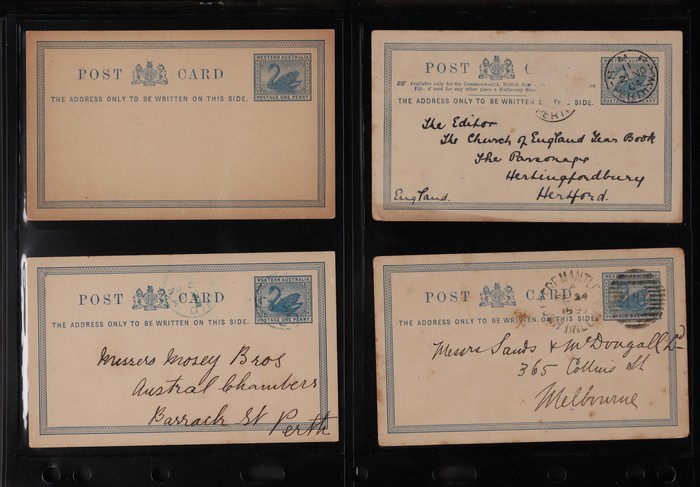 WESTERN AUSTRALIA
POST CARD
THE ADDRESS ONLY TO BE WRITTEN ON THIS SIDE.
POSTAGE ONE PENNY
POST C
Available only for the Commonwealth, British
Fiji, if used for any other place a Halfpenny
THE ADDRESS ONLY TO BE WRITTEN
SIDE.
The Editor
The Church of England Year Book
The Parsonage
Hertingfordbury
England. Hertford.
WESTERN AUSTRALIA
POST CARD
THE ADDRESS ONLY TO BE WRITTEN ON THIS SIDE.
POSTAGE ONE PENNY
Messers Mosey Bros
Austral Chambers
Barrack St Perth
POST CARD
FREMANTLE
THE ADDRESS ONLY TO BE WRITTEN ON THIS SIDE.
Messrs Sands & McDougall Ld
365 Collins St
Melbourne